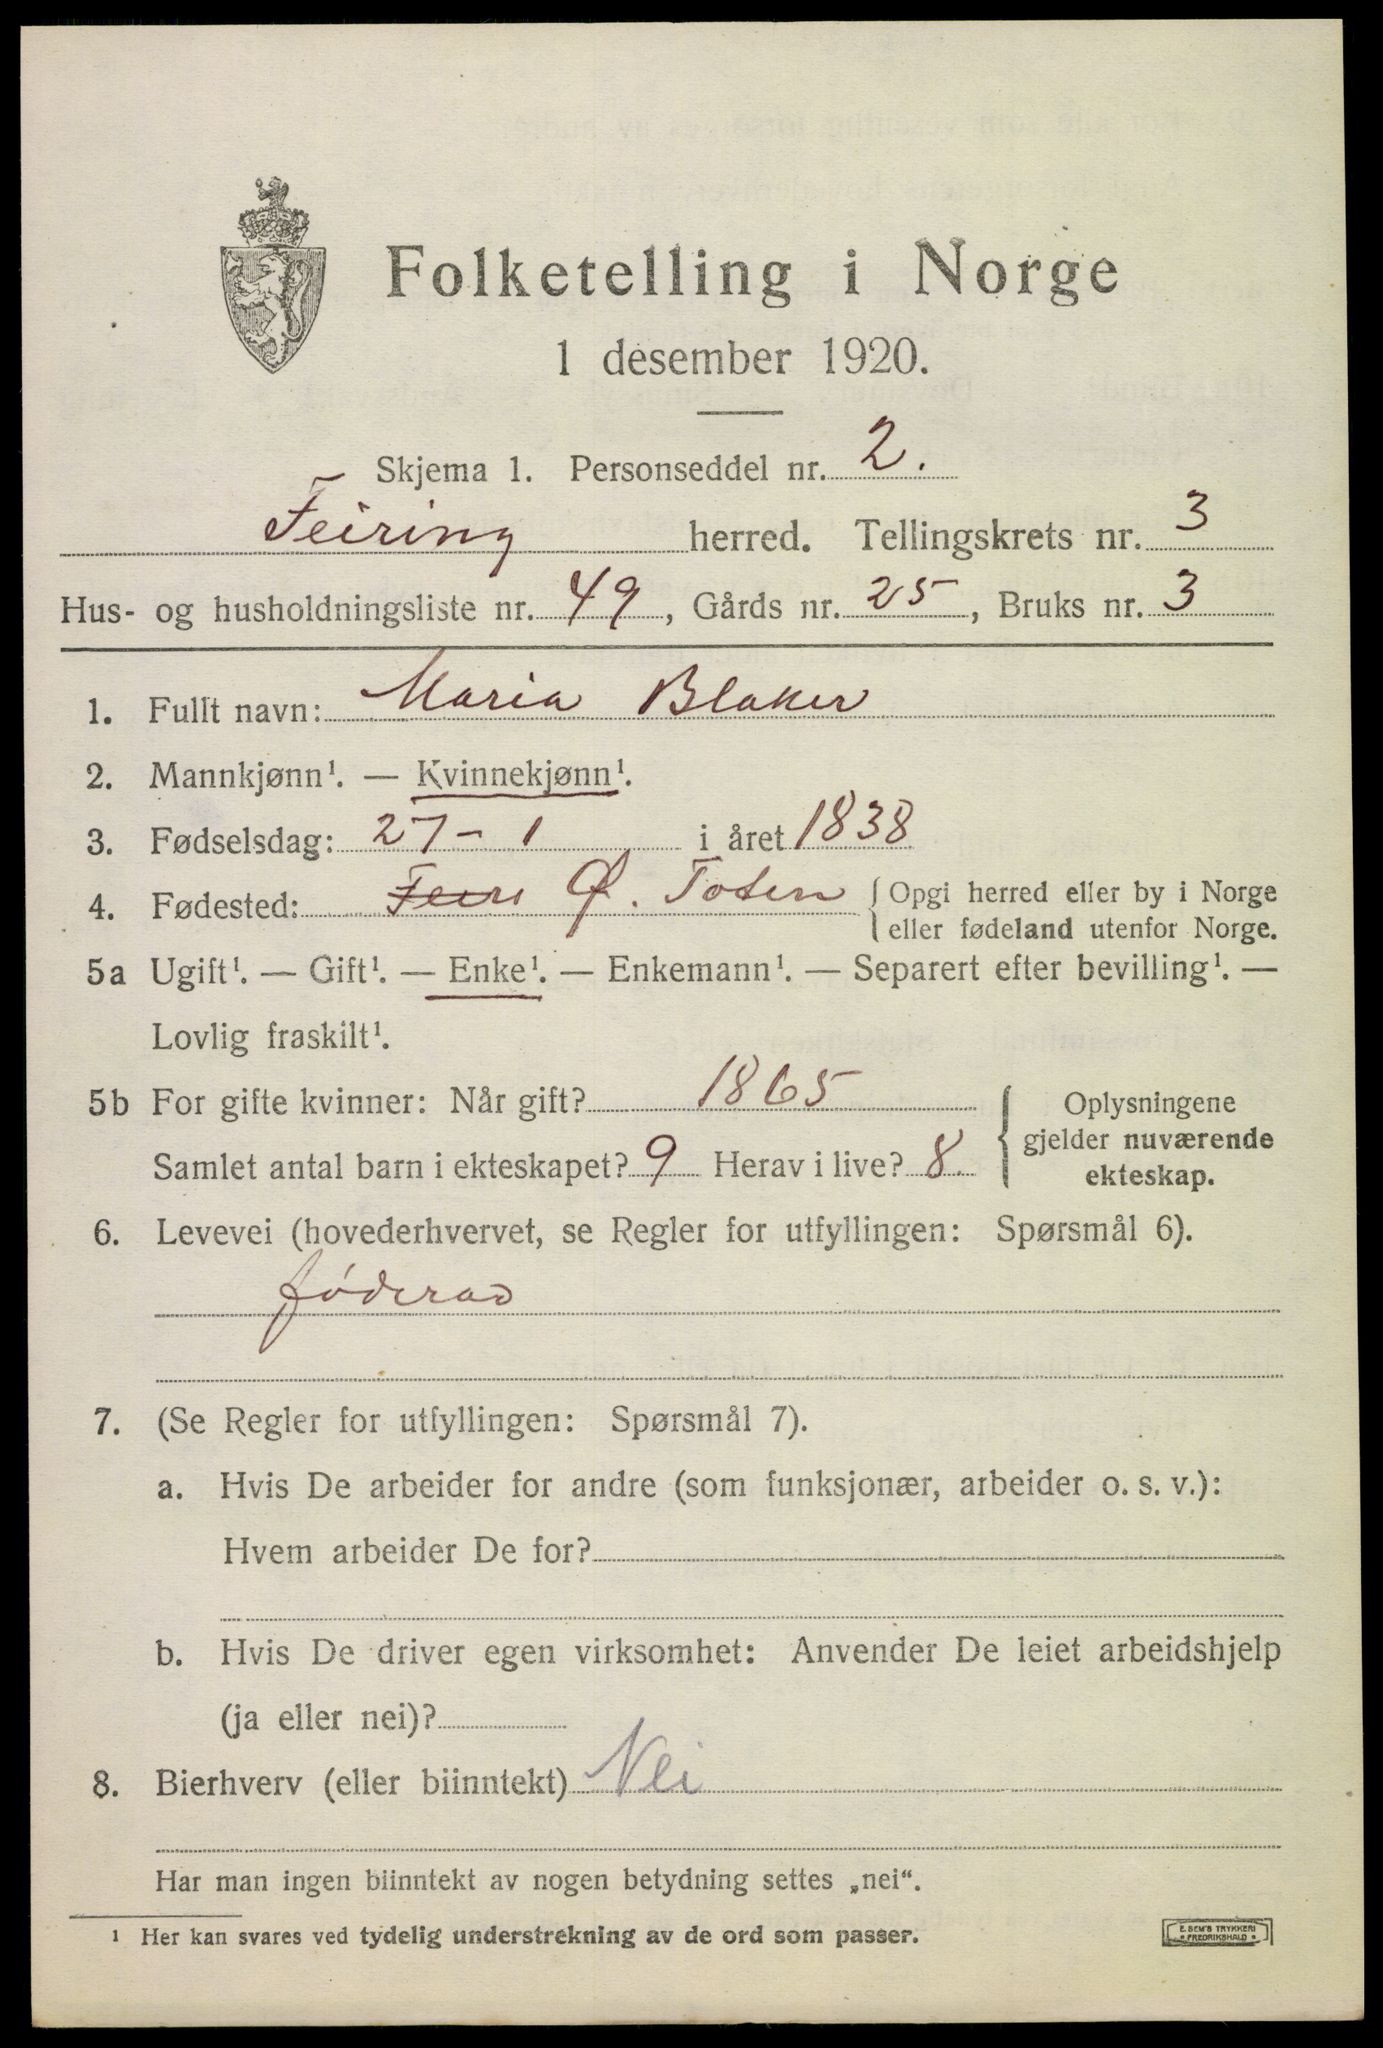 Folketelling i Norge
1 desember 1920.
Skjema 1. Personseddel nr. 2.
Feiring herred. Tellingskrets nr. 3
Hus- og husholdningsliste nr. 49, Gårds nr. 25, Bruks nr. 3
1. Fullt navn: Maria Blaker
2. Mannkjønn¹. — Kvinnekjønn¹.
3. Fødselsdag: 27 - 1 i året 1838
4. Fødested: Feiri Ø. Toten { Opgi herred eller by i Norge
eller fødeland utenfor Norge.
5a Ugift¹. — Gift¹. — Enke¹. — Enkemann¹. — Separert efter bevilling¹. —
Lovlig fraskilt¹.
5b For gifte kvinner: Når gift? 1865
Samlet antal barn i ekteskapet? 9 Herav i live? 8
{ Oplysningene
gjelder nuværende
ekteskap.
6. Levevei (hovederhvervet, se Regler for utfyllingen: Spørsmål 6).
føderad
7. (Se Regler for utfyllingen: Spørsmål 7).
a. Hvis De arbeider for andre (som funksjonær, arbeider o. s. v.):
Hvem arbeider De for?
b. Hvis De driver egen virksomhet: Anvender De leiet arbeidshjelp
(ja eller nei)?
8. Bierhverv (eller biinntekt) Nei
Har man ingen biinntekt av nogen betydning settes „nei“.
¹ Her kan svares ved tydelig understrekning av de ord som passer.
E. SEM'S TRYKKERI
• FREDRIKSHALD •